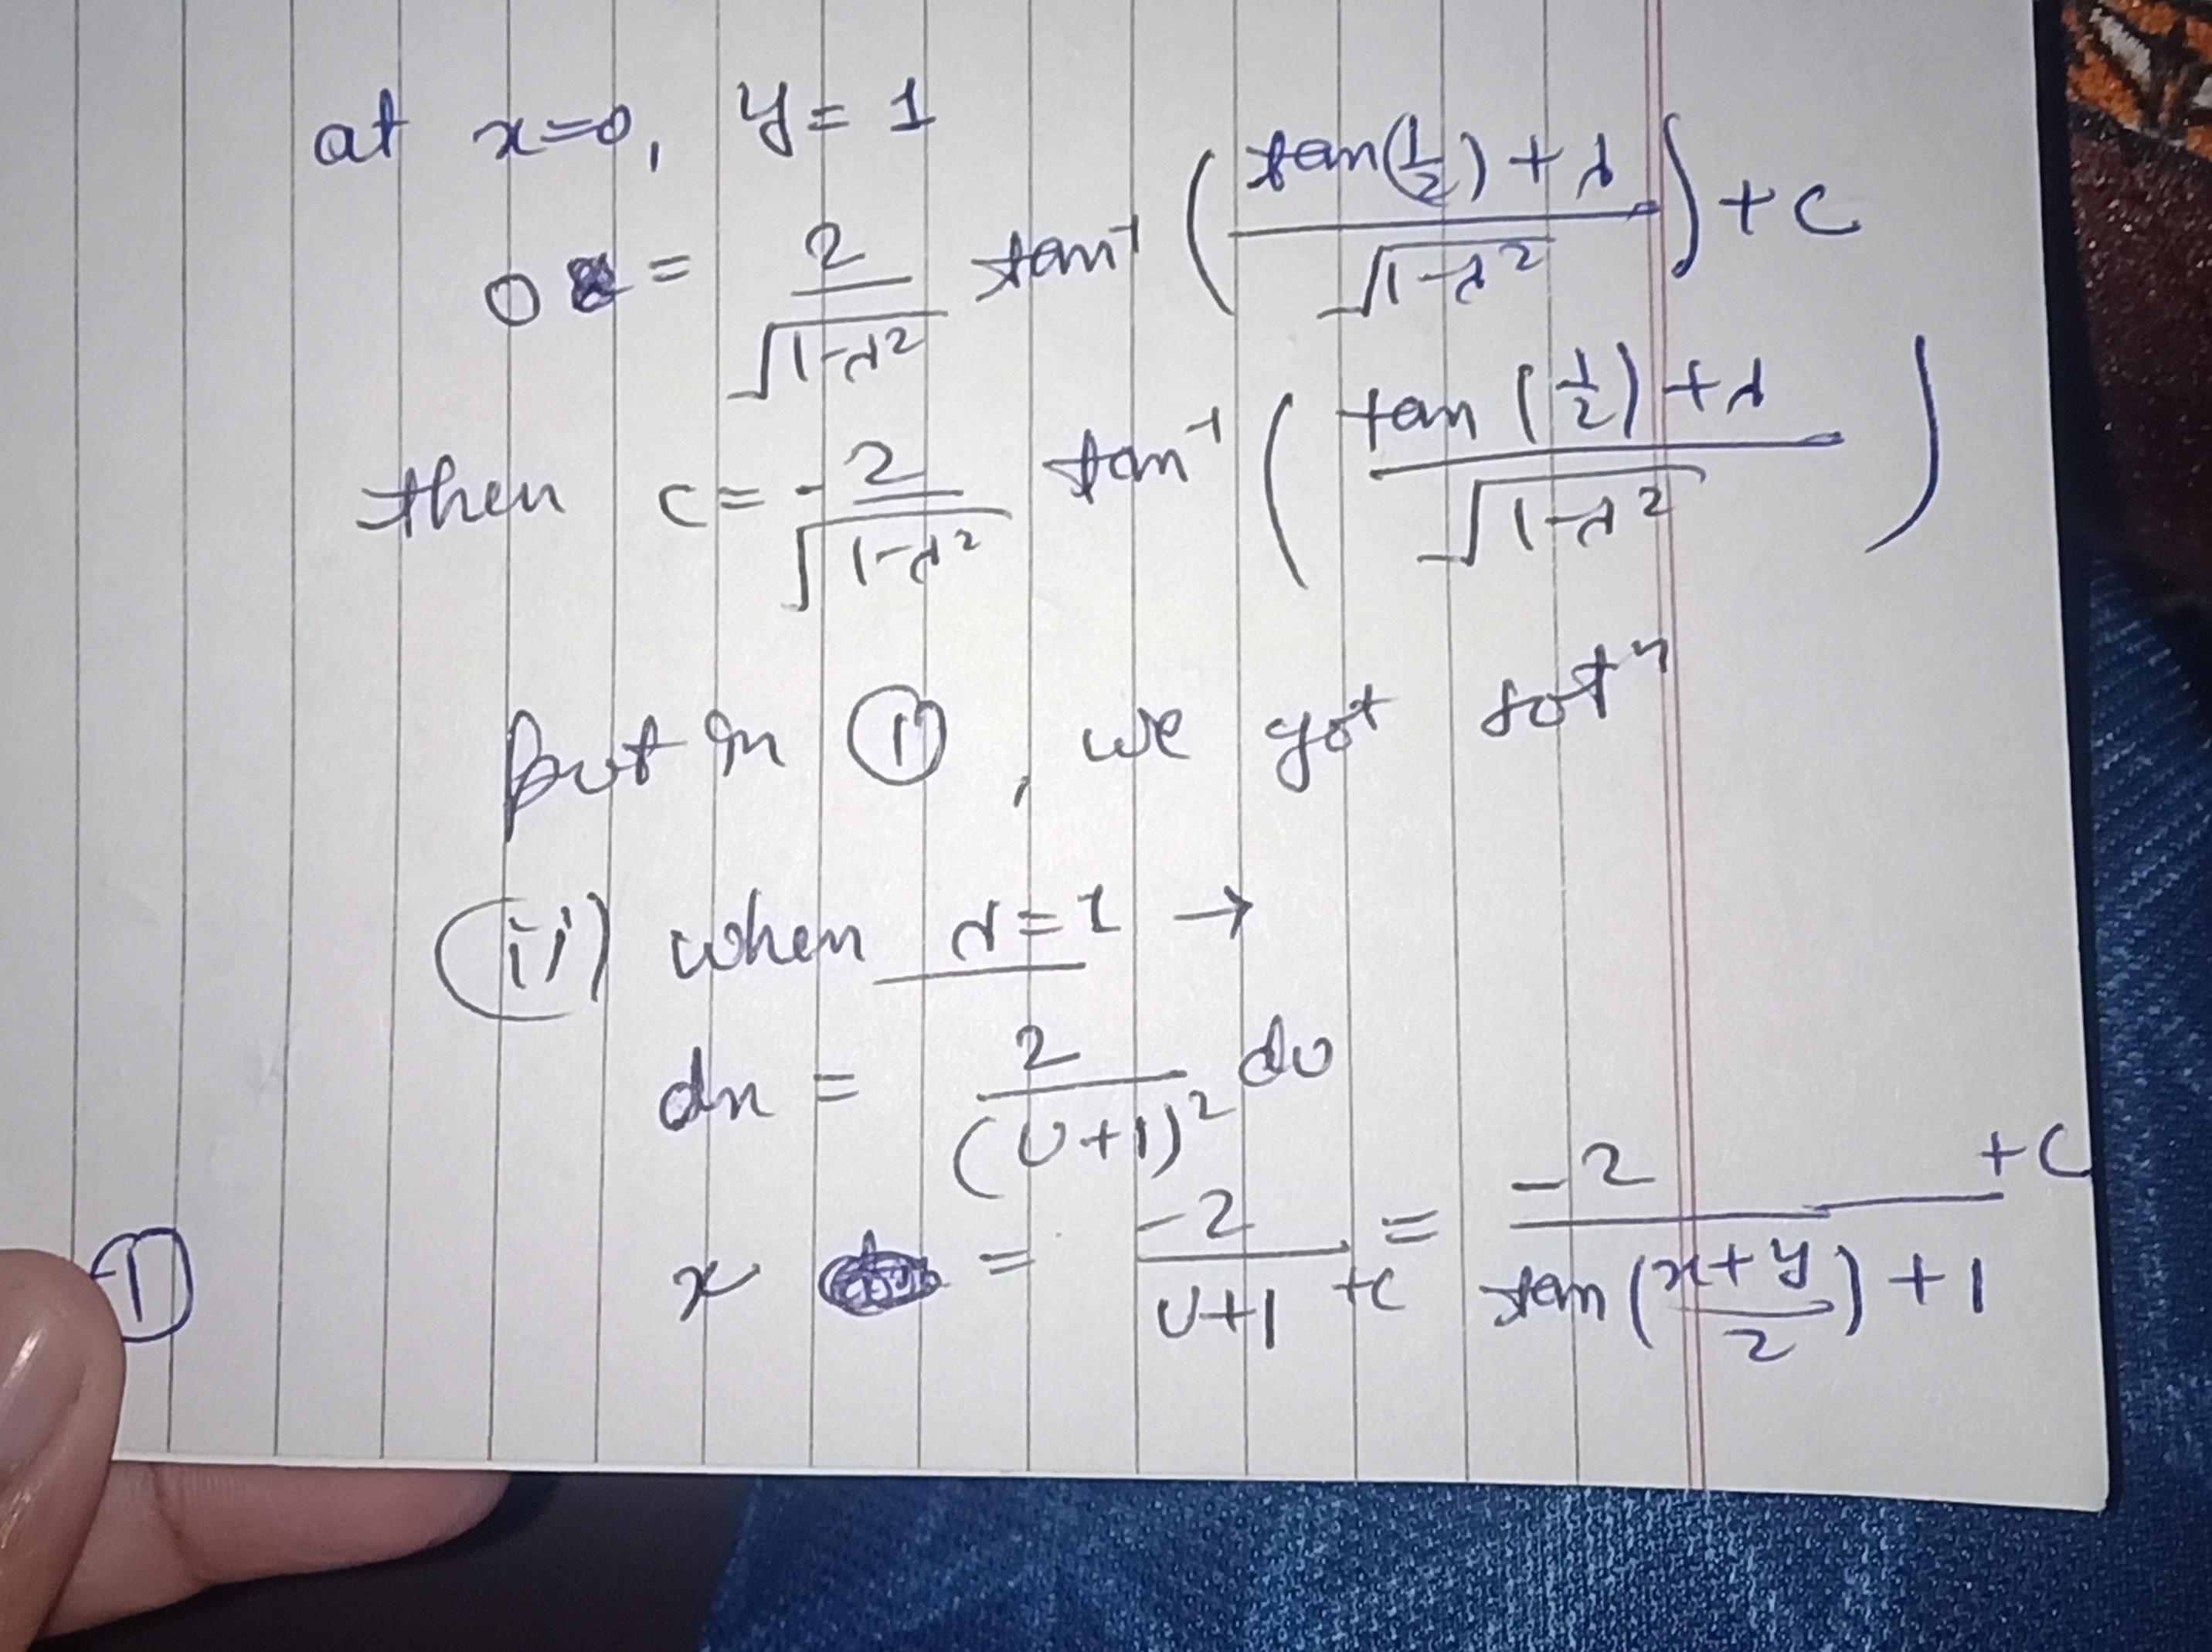 at x=0, y=1
0 = 2/√(1-λ²) tan⁻¹ ( (tan(1/2) + λ)/√(1-λ²) ) + C
then c = - 2/√(1-λ²) tan⁻¹ ( (tan (1/2) + λ)/√(1-λ²) )
put in ①, we got solⁿ
(ii) when λ=1 →
dx = 2/(v+1)² dv
x = -2/(v+1) + c = -2/(tan((x+y)/2) + 1) + C
①